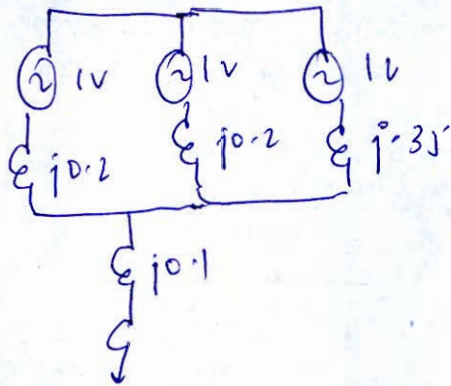 1v 1v 1v
j0.2 j0.2 j.35
j0.1